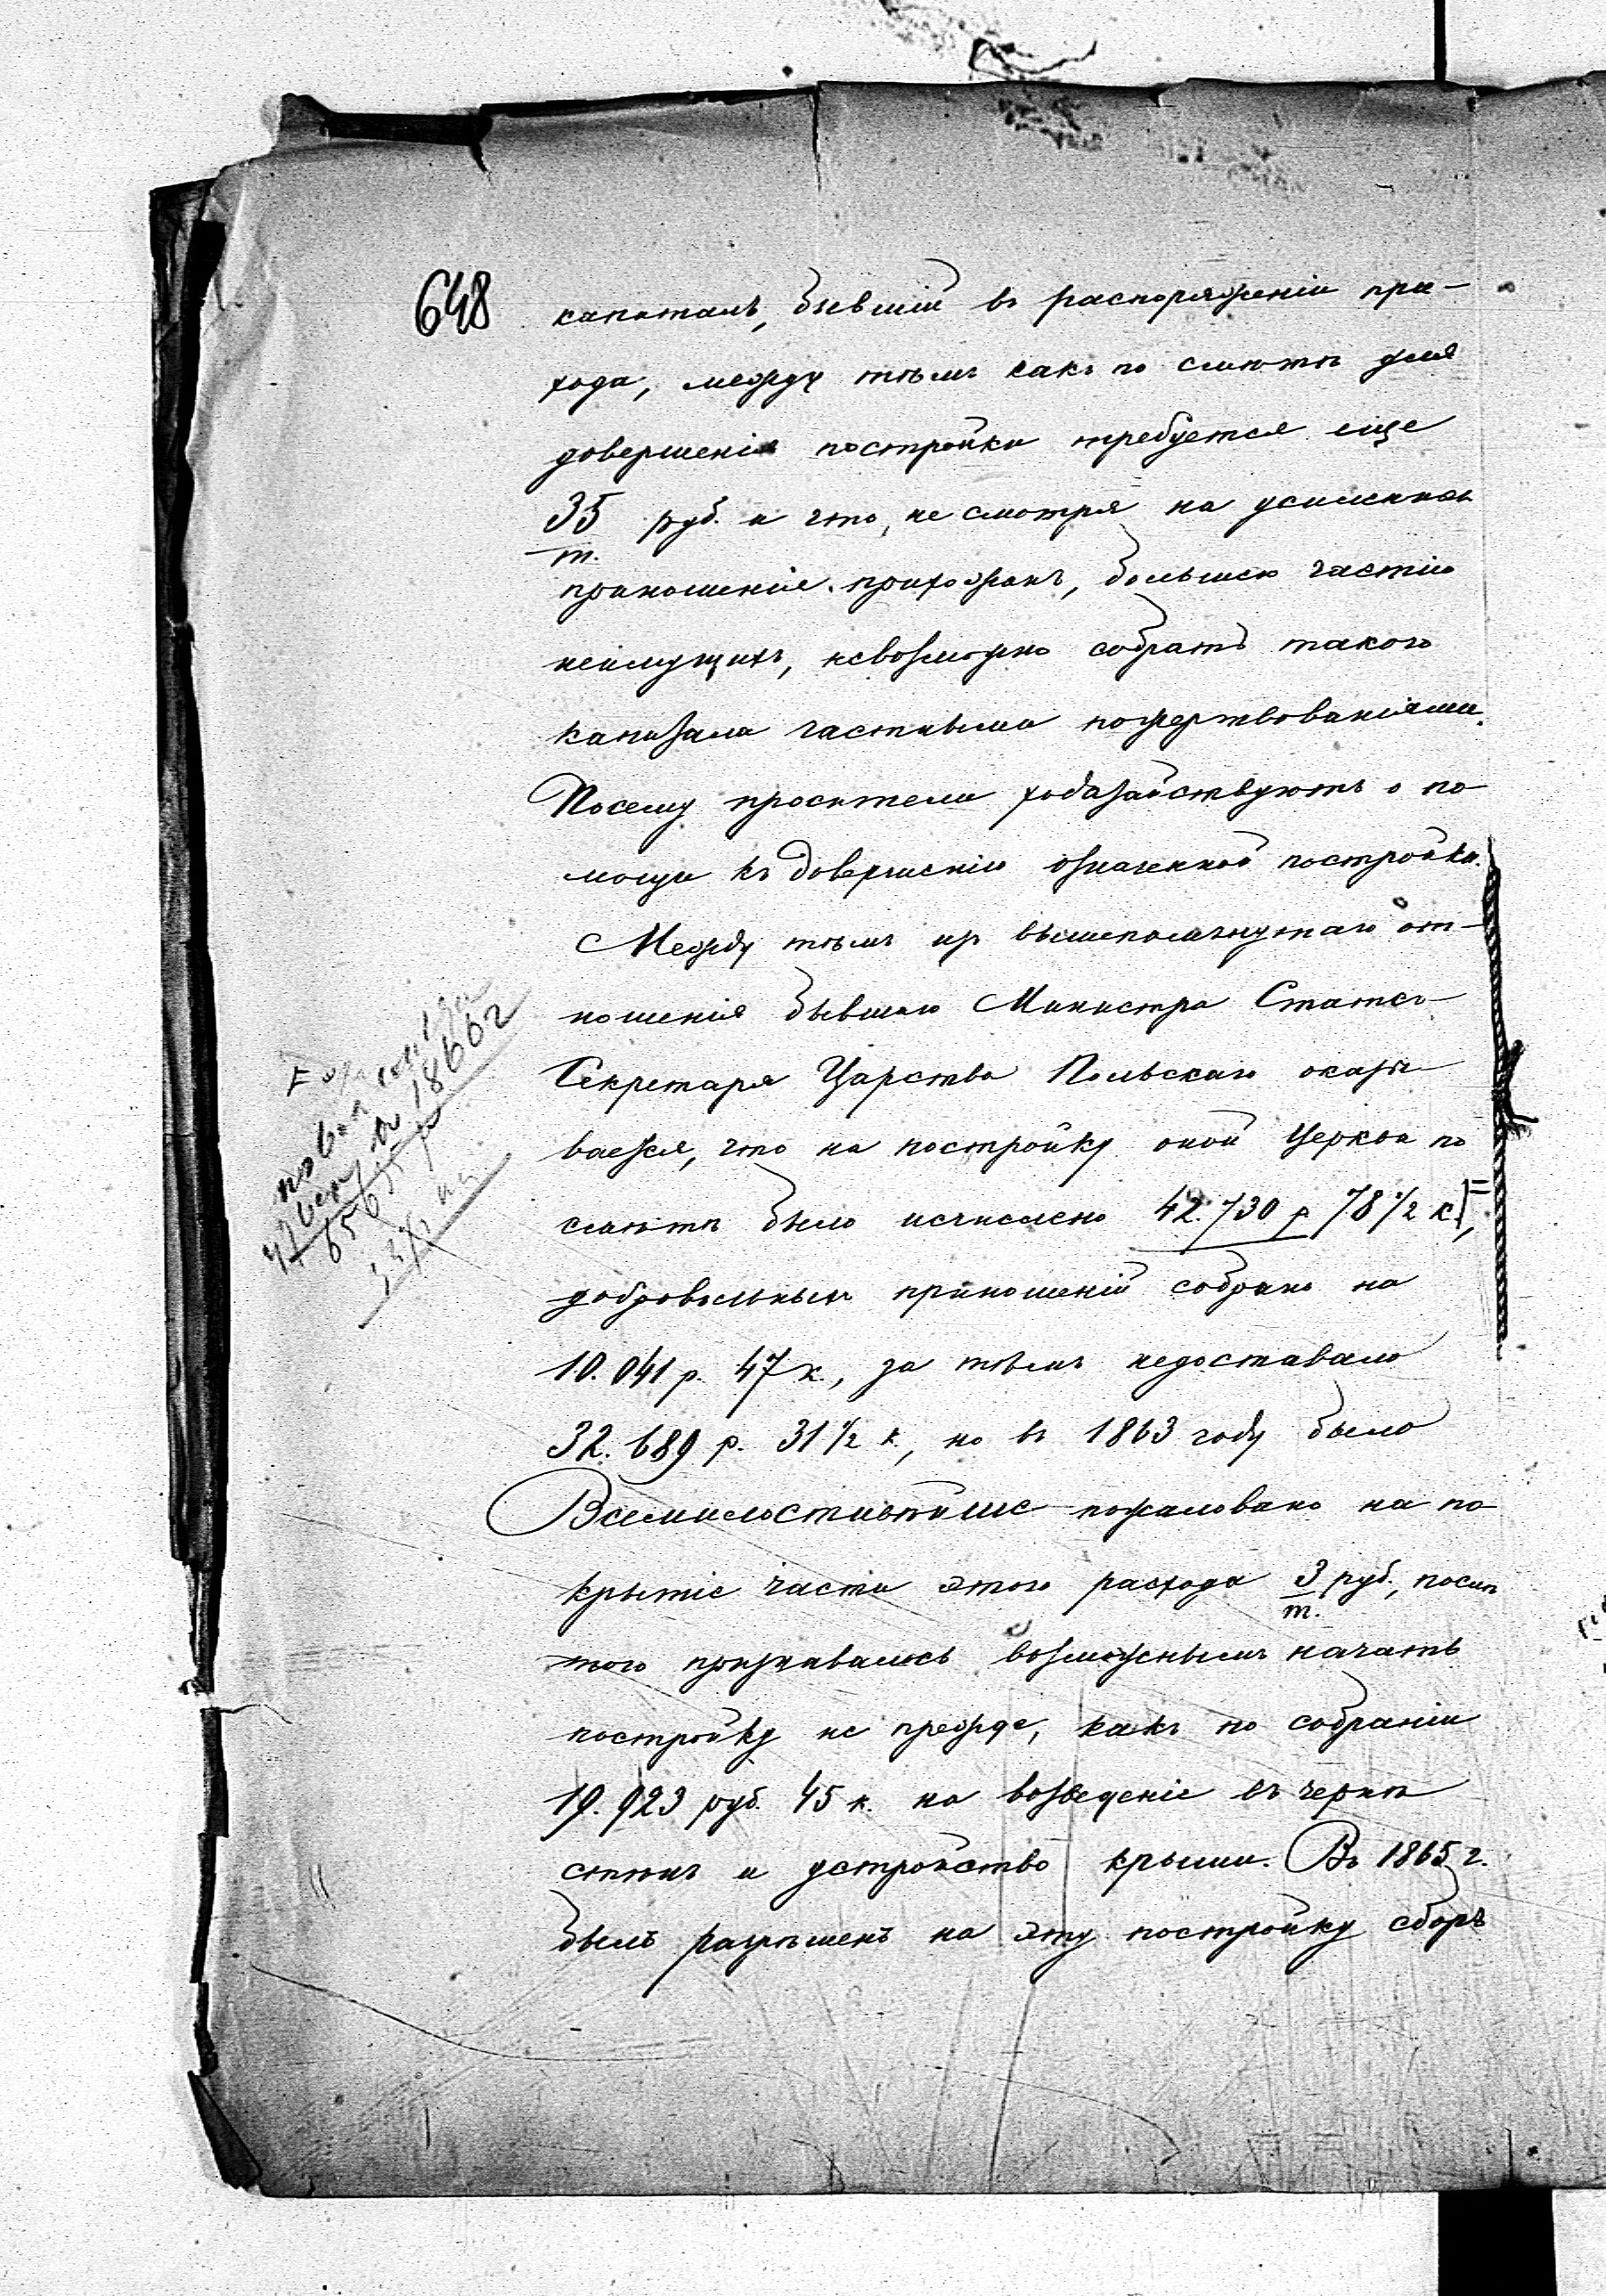 648
капиталъ, бывшій въ распоряженіи при-
хода, между тѣмъ какъ по смѣтѣ для
довершенія постройки требуется еще
35 руб. и что, не смотря на усиленныя
т.
приношенія прихожанъ, большею частію
неимущихъ, невозможно собрать такого
капитала частными пожертвованіями.
Посему просители ходатайствуютъ о по-
мощи къ довершенію означенной постройки.
Между тѣмъ изъ вышепомянутаго от-
ношенія бывшаго Министра Статсъ-
Секретаря Царства Польскаго оказы-
вается, что на постройку оной Церкви по
смѣтѣ было исчислено 42.730 р 78 1/2 к.,
добровольныхъ приношеній собрано на
10.041 р. 47 к., за тѣмъ недоставало
32.689 р. 31 1/2 к., но въ 1863 году было
Всемилостивѣйше пожаловано на по-
крытіе части этого расхода 3 руб., послѣ
т.
того признавалось возможнымъ начать
постройку не прежде, какъ по собраніи
19.923 руб. 45 к. на возведеніе въ чернѣ
стѣнъ и устройство крыши. Въ 1865 г.
былъ разрѣшенъ на эту постройку сборъ
1866 г